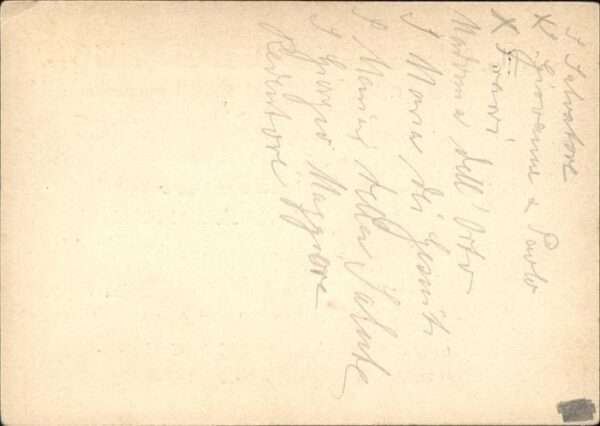 S Salvatore
X S. Giovanni e Paolo
X Frari
Madonna dell'Orto
S Maria dei Gesuiti
S Maria della Salute
S Giorgio Maggiore
Redentore